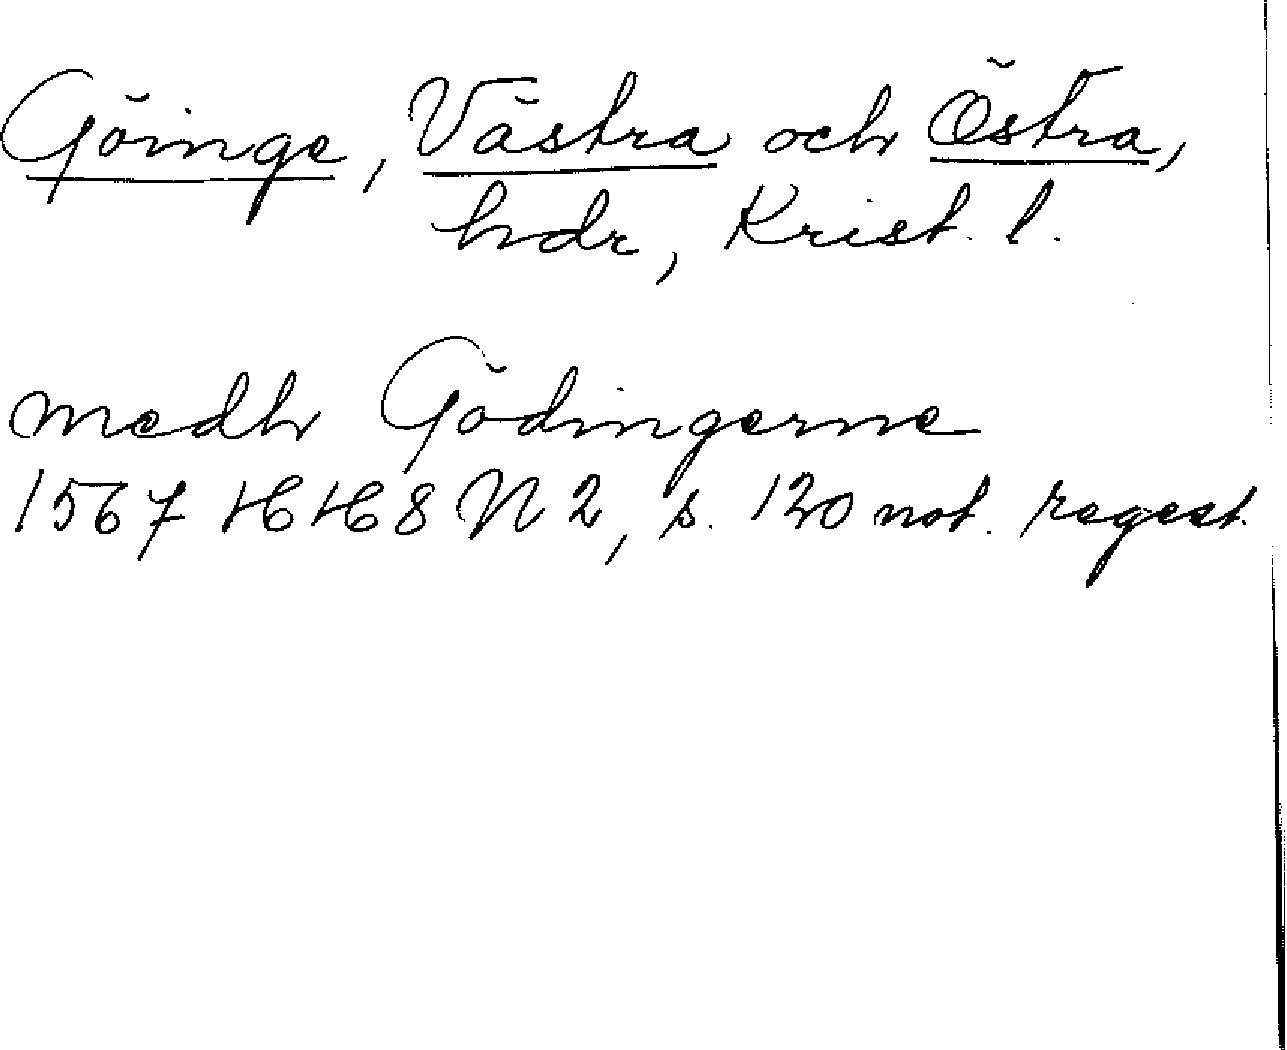 Göinge, Västra och Östra,
hdr, Krist. l.
medh Gödingerne
1567 HH 8 N 2, s. 120 not. regest.